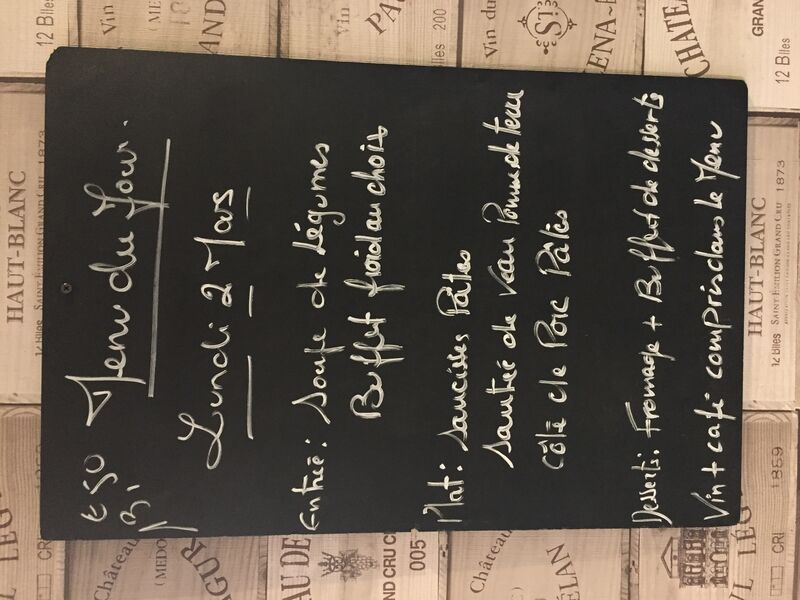 13,€50
Menu du Jour.
Lundi 2 Mars
Entrée: Soupe de Légumes
Buffet froid au choix
Plat: Saucisses Pâtes
Sautée de Veau Pomme de terre
côte de Porc Pâtes
Desserts: Fromage + Buffet de desserts
Vin + café compris dans le Menu
HAUT-BLANC
SAINT EMILION GRAND CRU 1873
12 Blles
HAUT-BLANC
12 Blles SAINT EMILION GRAND CRU 1873
Château
(MEDO
005
Château
CRI 1859
12 Blles
Vin du
200
GRAN
12 Blles